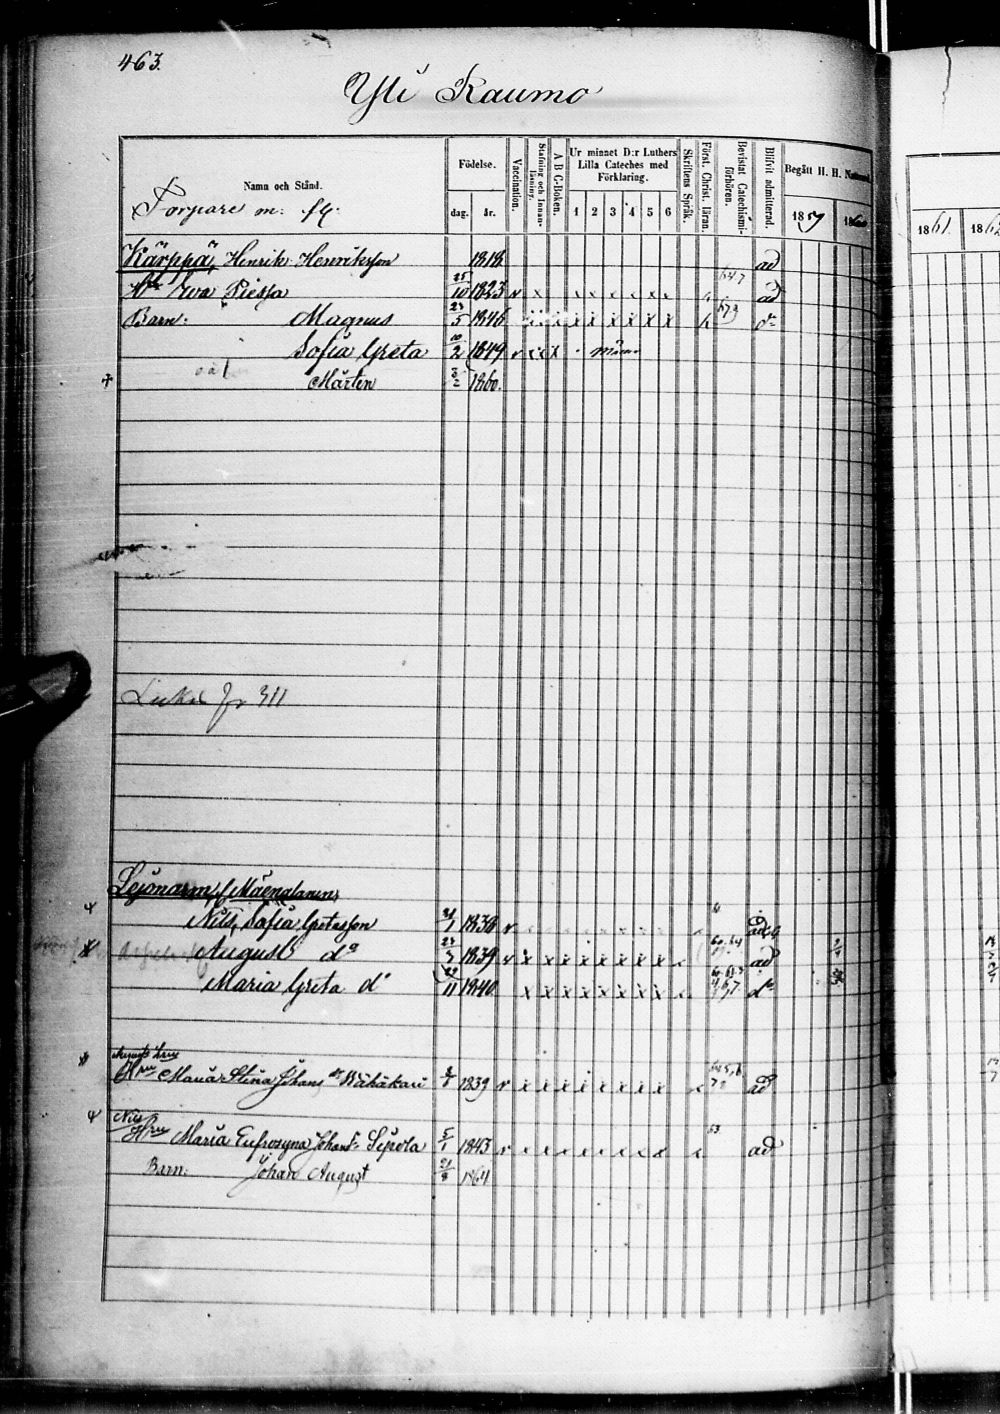 463.
Yli Raumo
Namn och Stånd.
Födelse.
dag.
år.
Vaccination.
Stafning och Innanläsning.
A B C-Boken.
Ur minnet D:r Luthers Lilla Cateches med Förklaring.
1 2 3 4 5 6
Skriftens Språk.
Först. Christ. läran.
Bevistat Catechismiförhören.
Blifvit admitterad.
Begått H. H. Nattvard.
1859
1860
1861
1862
Torpare m. fl.
Kärppä, Henrik Henriksson 1818 ad
Eva Piessa 25/10 1823 v ad
Barn: Magnus 23/5 1846 x x x x x x d:o
Sofia Greta 1849 v x x x
Märten 3/2 1860.
311
Lejonarm, (Mäenalanen)
Nils, Sofia Gretasson 1836 v
August d:o 1839 v x x x x x x x x x ad
Maria Greta d:o 11 1840 x x x x x x x x d:o
Augusts hru
Hru Maria Stina Johans d:r Wähäkari 1839 v x x x x x x x x ad
Nils
Hru Maria Eufrosyna Johans Sipola 5/1 1843 v x x x x x x x x ad
Barn: Johan August 21/8 1864